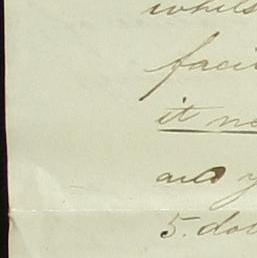 whils
faci
it ne
and y
5. dol